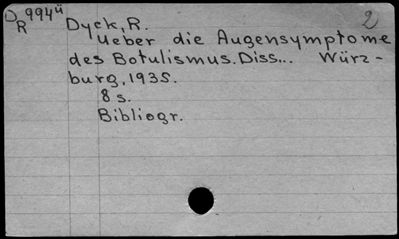 D 994ü 2
R
Dyck, R.
Ueber die Augensymptome
des Botulismus. Diss... Würz-
burg, 1935.
8 s.
Bibliogr.